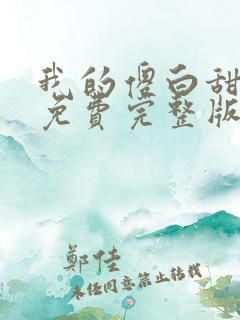 我的傻白甜
免費完整版
鄭佳
未经同意禁止转载